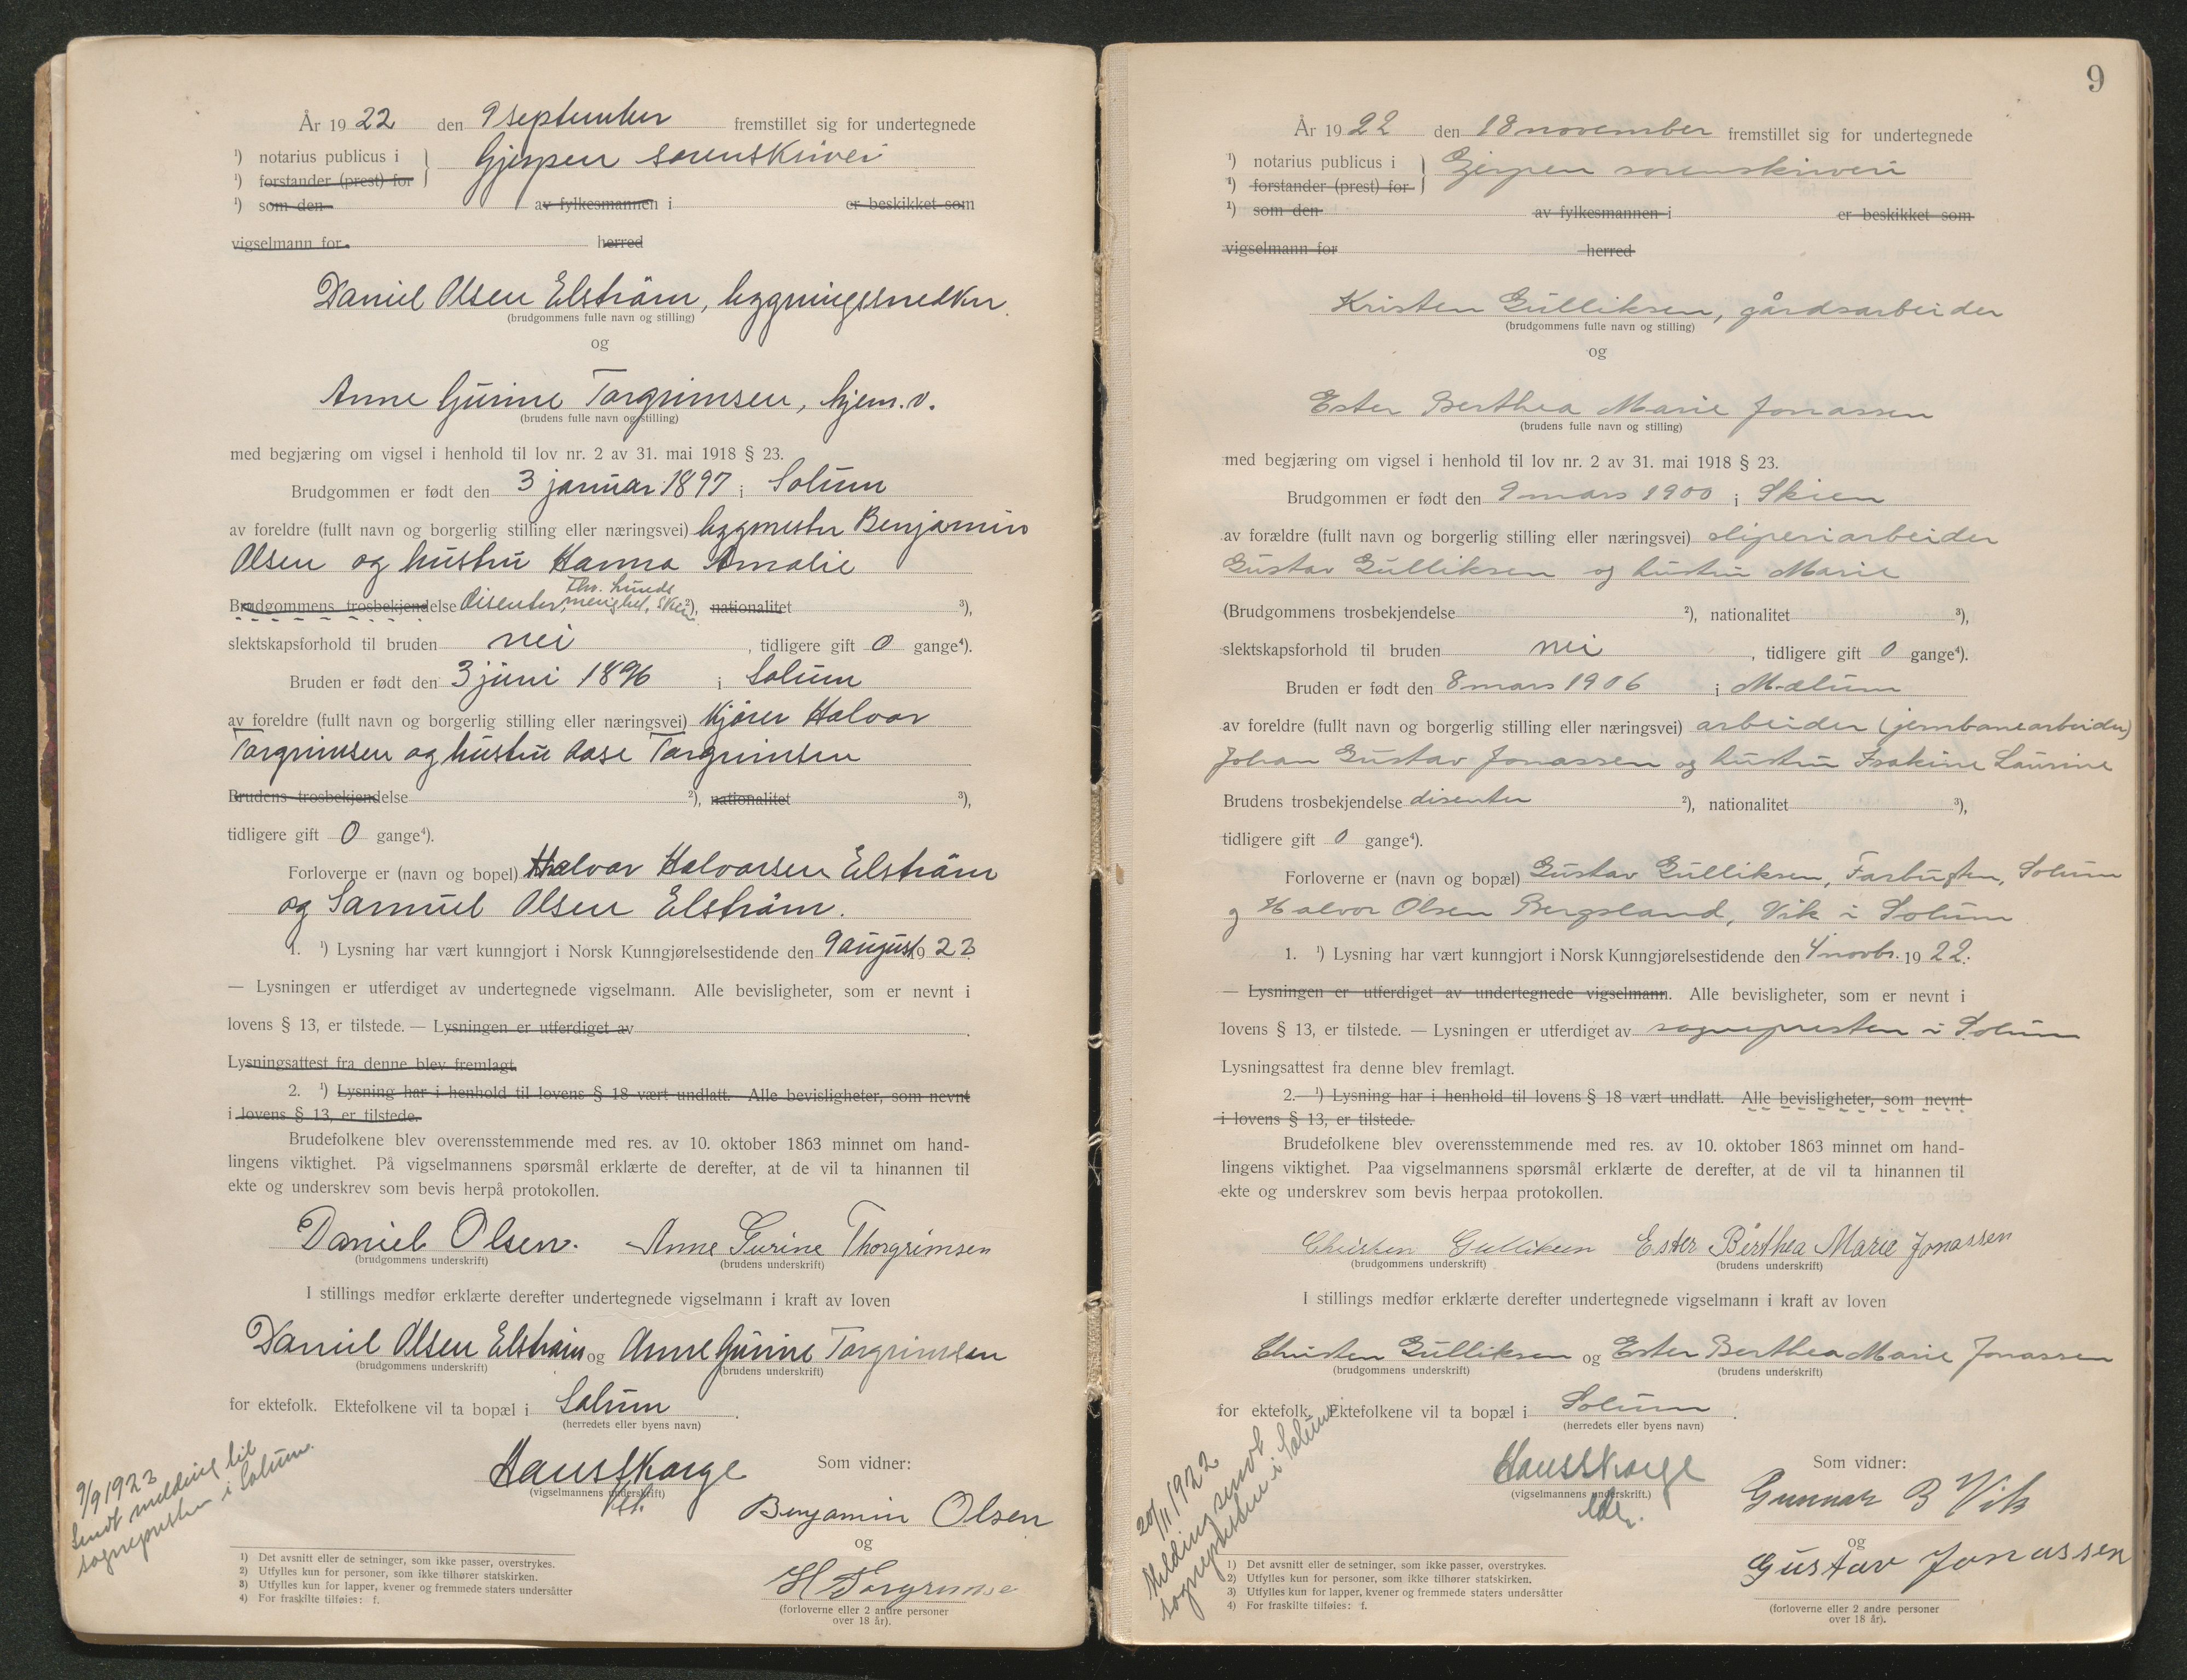 År 19 22 den 9 september fremstillet sig for undertegnede
¹) notarius publicus i } Gjerpen sorenskriveri
¹) forstander (prest) for
¹) som den av fylkesmannen i er beskikket som
vigselmann for herred
Daniel Olsen Elström, bygningssnedker
(brudgommens fulle navn og stilling)
og
Anne Gurine Torgrimsen, hjem.v.
(brudens fulle navn og stilling)
med begjæring om vigsel i henhold til lov nr. 2 av 31. mai 1918 § 23.
Brudgommen er født den 3 januar 1897 i Solum
av foreldre (fullt navn og borgerlig stilling eller næringsvei) bygmester Benjamin
Olsen og hustru Hanna Amalie
Brudgommens trosbekjendelse disenter, Thr. Lunds menighet, Skien ²), nationalitet ³),
slektskapsforhold til bruden nei, tidligere gift 0 gange⁴).
Bruden er født den 3 juni 1896 i Solum
av foreldre (fullt navn og borgerlig stilling eller næringsvei) kjører Halvor
Torgrimsen og hustru Aase Torgrimsen
Brudens trosbekjendelse ²), nationalitet ³),
tidligere gift 0 gange⁴).
Forloverne er (navn og bopel) Halvor Halvorsen Elström
og Samuel Olsen Elström.
1. ¹) Lysning har vært kunngjort i Norsk Kunngjørelsestidende den 9 august 19 22.
— Lysningen er utferdiget av undertegnede vigselmann. Alle bevisligheter, som er nevnt i
lovens § 13, er tilstede. — Lysningen er utferdiget av .
Lysningsattest fra denne blev fremlagt.
2. ¹) Lysning har i henhold til lovens § 18 vært undlatt. Alle bevisligheter, som nevnt
i lovens § 13, er tilstede.
Brudefolkene blev overensstemmende med res. av 10. oktober 1863 minnet om hand-
lingens viktighet. På vigselmannens spørsmål erklærte de derefter, at de vil ta hinannen til
ekte og underskrev som bevis herpå protokollen.
Daniel Olsen. Anne Gurine Thorgrimsen
(brudgommens underskrift) (brudens underskrift)
I stillings medfør erklærte derefter undertegnede vigselmann i kraft av loven
Daniel Olsen Elström og Anne Gurine Torgrimsen
(brudgommens underskrift) (brudens underskrift)
for ektefolk. Ektefolkene vil ta bopæl i Solum .
(herredets eller byens navn)
Hans Skorge Som vidner:
(vigselmannens underskrift)
Benjamin Olsen
og
H Torgrimse
(forloverne eller 2 andre personer
over 18 år).
9/9 1922
Sendt melding til
sognepresten i Solum.
¹) Det avsnitt eller de setninger, som ikke passer, overstrykes.
²) Utfylles kun for personer, som ikke tilhører statskirken.
³) Utfylles kun for lapper, kvener og fremmede staters undersåtter
⁴) For fraskilte tilføies: f.
9
År 19 22 den 18 november fremstillet sig for undertegnede
¹) notarius publicus i } Gjerpen sorenskriveri
¹) forstander (prest) for
¹) som den av fylkesmannen i er beskikket som
vigselmann for herred
Kristen Gulliksen, gårdsarbeider
(brudgommens fulle navn og stilling)
og
Ester Berthea Marie Jonassen
(brudens fulle navn og stilling)
med begjæring om vigsel i henhold til lov nr. 2 av 31. mai 1918 § 23.
Brudgommen er født den 9 mars 1900 i Skien
av forældre (fullt navn og borgerlig stilling eller næringsvei) sliperiarbeider
Gustav Gulliksen og hustru Marie
(Brudgommens trosbekjendelse ²), nationalitet ³),
slektskapsforhold til bruden nei, tidligere gift 0 gange⁴).
Bruden er født den 8 mars 1906 i Mælum
av foreldre (fullt navn og borgerlig stilling eller næringsvei) arbeider (jernbanearbeider)
Johan Gustav Jonassen og hustru Isakine Laurine
Brudens trosbekjendelse disenter ²), nationalitet ³),
tidligere gift 0 gange⁴).
Forloverne er (navn og bopæl) Gustav Gulliksen, Farbugten, Solum
og Halvor Olsen Bergsland, Vik i Solum
1. ¹) Lysning har vært kunngjort i Norsk Kunngjørelsestidende den 4 novbr. 19 22.
— Lysningen er utferdiget av undertegnede vigselmann. Alle bevisligheter, som er nevnt i
lovens § 13, er tilstede. — Lysningen er utferdiget av sognepresten i Solum
Lysningsattest fra denne blev fremlagt.
2. ¹) Lysning har i henhold til lovens § 18 vært undlatt. Alle bevisligheter, som nevnt
i lovens § 13, er tilstede.
Brudefolkene blev overensstemmende med res. av 10. oktober 1863 minnet om hand-
lingens viktighet. Paa vigselmannens spørsmål erklærte de derefter, at de vil ta hinannen til
ekte og underskrev som bevis herpaa protokollen.
Christen Gulliksen Ester Berthea Marie Jonassen
(brudgommens underskrift) (brudens underskrift)
I stillings medfør erklærte derefter undertegnede vigselmann i kraft av loven
Christen Gulliksen og Ester Berthea Marie Jonassen
(brudgommens underskrift) (brudens underskrift)
for ektefolk. Ektefolkene vil ta bopæl i Solum .
(herredets eller byens navn)
Hans Skorge Som vidner:
(vigselmannens underskrift.)
Gunnar B Vik
og
Gustav Jonassen
(forloverne eller 2 andre personer
over 18 år).
20/11 1922
Melding sendt
sognepresten i Solum
¹) Det avsnitt eller de setninger, som ikke passer, overstrykes.
²) Utfylles kun for personer, som ikke tilhører statskirken.
³) Utfylles kun for lapper, kvener og fremmede staters undersåtter
⁴) For fraskilte tilføies: f.